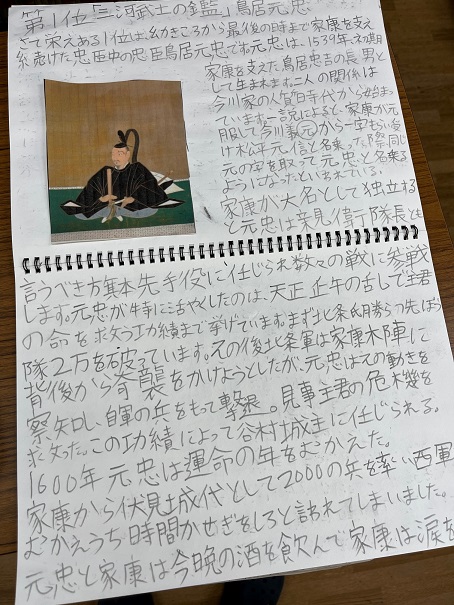 第1位「三河武士の鑑」鳥居元忠
さて栄えある1位は、幼きころから最後の時まで家康を支え
続けた忠臣中の忠臣鳥居元忠です。元忠は、1539年、ネコ期
家康を支えた鳥居忠吉の長男と
して生まれます。二人の関係は
今川家の人質時代から始まっ
ています。一説によると、家康が元
服して今川義元から一字もらい受
け松平元信と名乗った際、同じ
元の字を取って元忠と名乗る
ようになったといわれている。
家康が大名として独立する
と元忠は親衛隊長とも
言うべき旗本先手役に任じられ数々の戦に参戦
します。元忠が特に活やくしたのは、天正壬午の乱で主君
の命を求う功績まで挙げています。まず北条氏勝らつ先ぽう
隊2万を破っています。その後北条軍は家康本陣に
背後から奇襲をかけようとしたが、元忠はその動きを
察知し、自軍の兵をもって撃退。見事主君の危機を
求った。この功績によって谷村城主に任じられる。
1600年元忠は運命の年をむかえた。
家康から伏見城代として2000の兵を率い西軍
むかえうち時間かせぎをしろと言われてしまいました。
元忠と家康は今晩の酒を飲んで家康は涙を